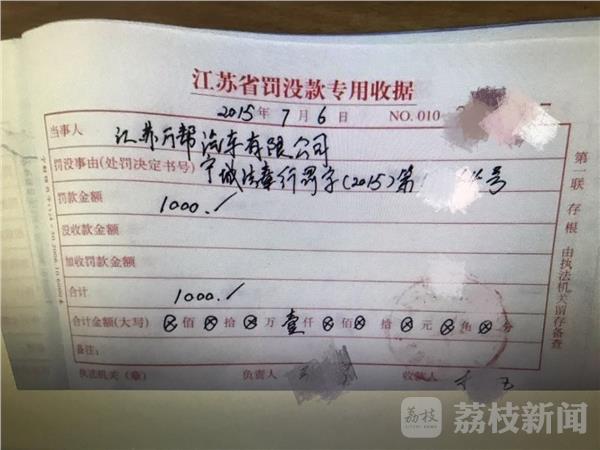 江苏省罚没款专用收据
2015年7月6日 NO.010
当事人 江苏万帮汽车有限公司
罚没事由(处罚决定书号) 宁城法秦行罚字(2015)第 号
罚款金额 1000./
没收款金额
加收罚款金额
合计 1000./
合计金额(大写) ⊗佰⊗拾⊗万壹仟⊗佰⊗拾⊗元⊗角⊗分
备注:
执法机关(章) 负责人 收款人
第一联 存根 由执法机关留存备查
荔枝
LITCHI NEWS
荔枝新闻